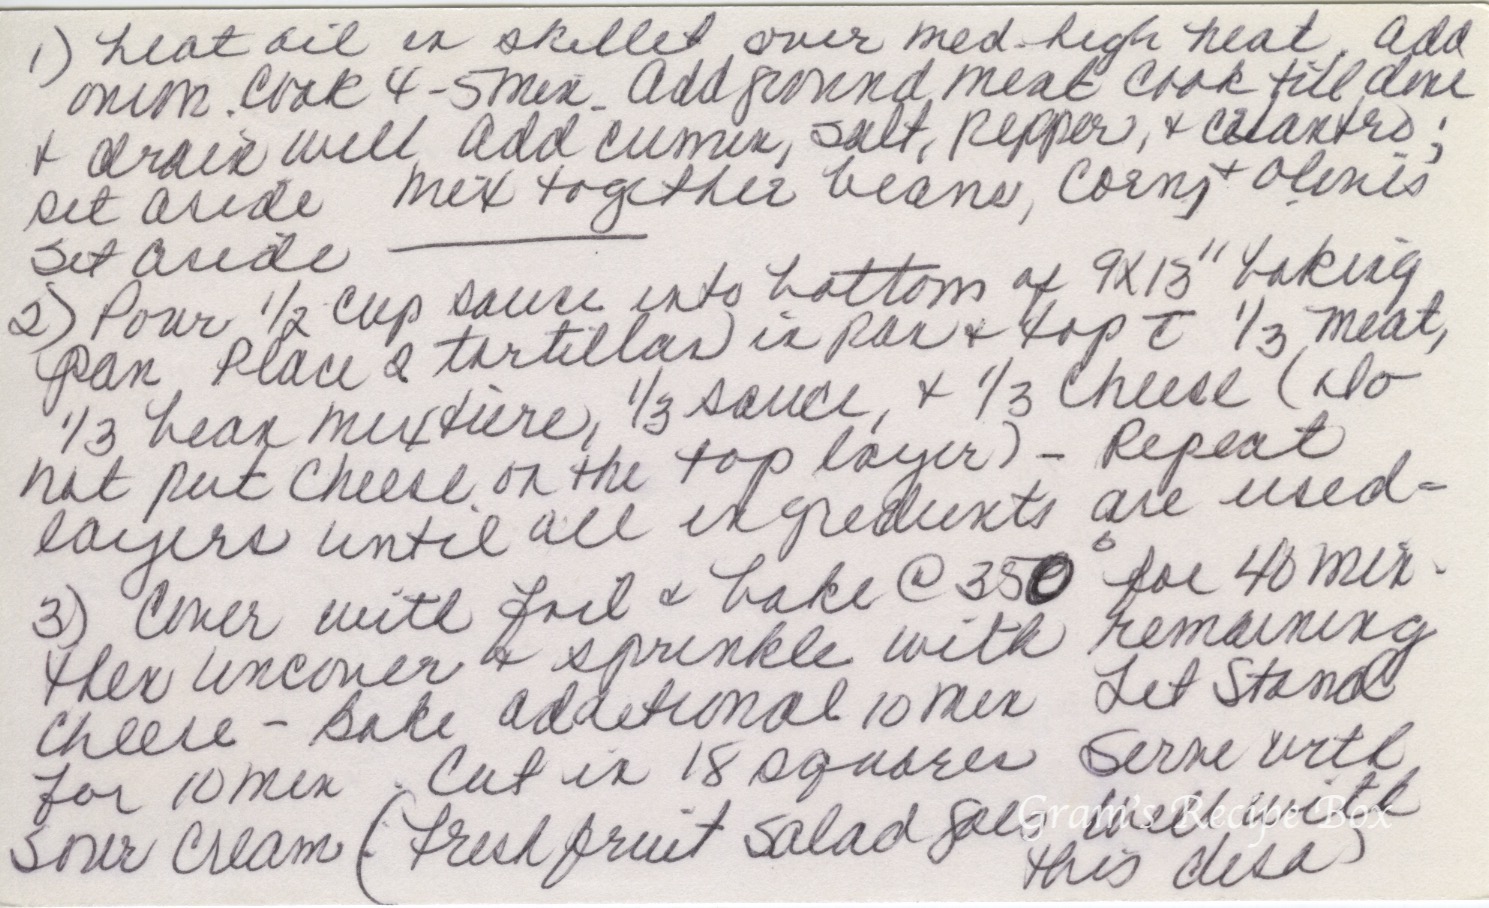 1) heat oil in skillet over med-high heat. Add
onion. Cook 4-5 min. Add ground meat cook till done
+ drain well. Add cumin, salt, pepper, + cilantro;
set aside mix together beans, corn, + olives
set aside
2) Pour 1/2 cup sauce into bottom of 9x13" baking
pan. Place 2 tortillas in pan + top c̄ 1/3 meat,
1/3 bean mixture, 1/3 sauce, + 1/3 cheese (do
not put cheese on the top layer) - Repeat
layers until all ingredients are used-
3) Cover with foil & bake @ 350° for 40 min.
then uncover & sprinkle with remaining
cheese - Bake additional 10 min Let Stand
for 10 min. Cut in 18 squares Serve with
Sour cream (Fresh fruit salad goes well with
this dish)
Gram's Recipe Box